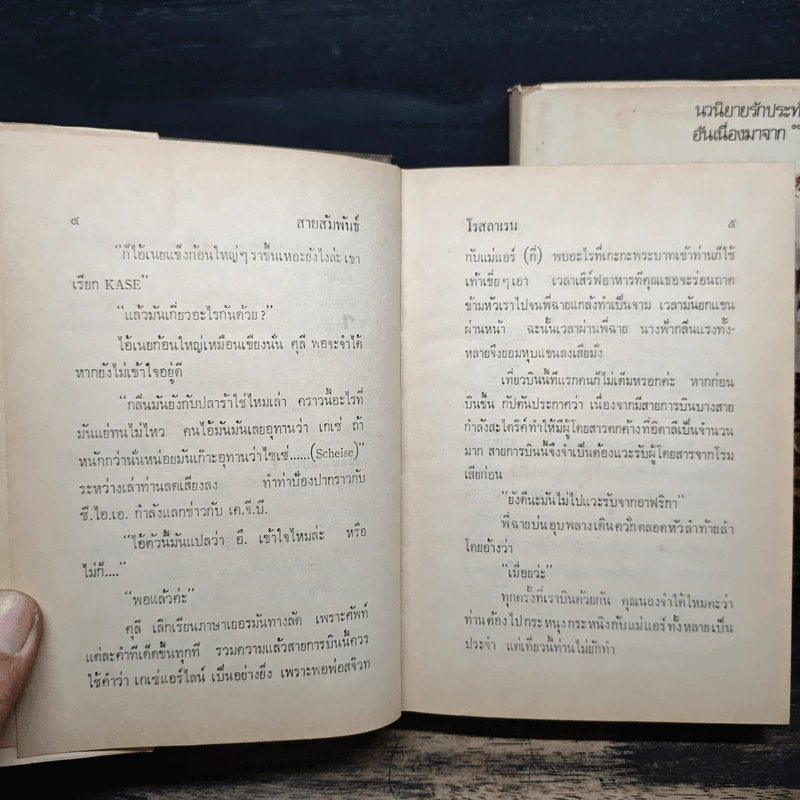 นวนิยายรักประทั
อันเนื่องมาจาก
๔ สายสัมพันธ์
"ก็ไอ้เนยแข็งก้อนใหญ่ๆ ราขึ้นเหอะยังไงล่ะ เขา
เรียก KASE"
"แล้วมันเกี่ยวอะไรกันด้วย ?"
ไอ้เนยก้อนใหญ่เหมือนเขียงนั่น ศุลี พอจะจำได้
หากยังไม่เข้าใจอยู่ดี
"กลิ่นมันยังกับปลาร้าใช่ไหมเล่า คราวนี้อะไรที่
มันแย่ทนไม่ไหว คนไอ้มันมันเลยอุทานว่า เกเซ่ ถ้า
หนักกว่านั้นหน่อยมันก๊ะอุทานว่าไชเซ่......(Scheise)"
ระหว่างเล่าท่านลดเสียงลง ทำท่าป้องปากราวกับ
ซี.ไอ.เอ. กำลังแลกข่าวกับ เค.จี.บี.
"ไอ้ตัวนี้มันแปลว่า อึ. เข้าใจไหมล่ะ หรือ
ไม่ก็...."
"พอแล้วค่ะ"
ศุลี เลิกเรียนภาษาเยอรมันทางลัด เพราะศัพท์
แต่ละคำที่เด็ดขึ้นทุกที รวมความแล้วสายการบินนี้ควร
ใช้คำว่า เกเซ่แอร์ไลน์ เป็นอย่างยิ่ง เพราะพอพ่อสจ๊วท
โรสลาเรน ๕
กับแม่แอร์ (กี่) พบอะไรที่เกะกะพระบาทเข้าท่านก็ใช้
เท้าเขี่ยๆ เอา เวลาเสิร์ฟอาหารที่คุณเธอจะร่อนถาด
ข้ามหัวเราไปจนพี่ฉายแกล้งทำเป็นจาม เวลามันยกแขน
ผ่านหน้า ฉะนั้นเวลาผ่านพี่ฉาย นางฟ้ากลิ่นแรงทั้ง-
หลายจึงยอมหุบแขนลงเสียมั่ง
เที่ยวบินนี้ทีแรกคนก็ไม่เต็มหรอกค่ะ หากก่อน
บินขึ้น กัปตันประกาศว่า เนื่องจากมีสายการบินบางสาย
กำลังสะไตร๊ค์ทำให้มีผู้โดยสารตกค้างที่อิตาลีเป็นจำนวน
มาก สายการบินนี้จึงจำเป็นต้องแวะรับผู้โดยสารจากโรม
เสียก่อน
"ยังดีนะมันไม่ไปแวะรับจากอาฟริกา"
พี่ฉายบ่นอุบพลางเดินควั่กตลอดหัวลำท้ายลำ
โดยอ้างว่า
"เมื่อยว่ะ"
ทุกครั้งที่เราบินด้วยกัน คุณนองจำได้ไหมคะว่า
ท่านต้องไปกระหนุงกระหนิงกับแม่แอร์ทั้งหลายเป็น
ประจำ แต่เที่ยวนี้ท่านไม่ยักทำ